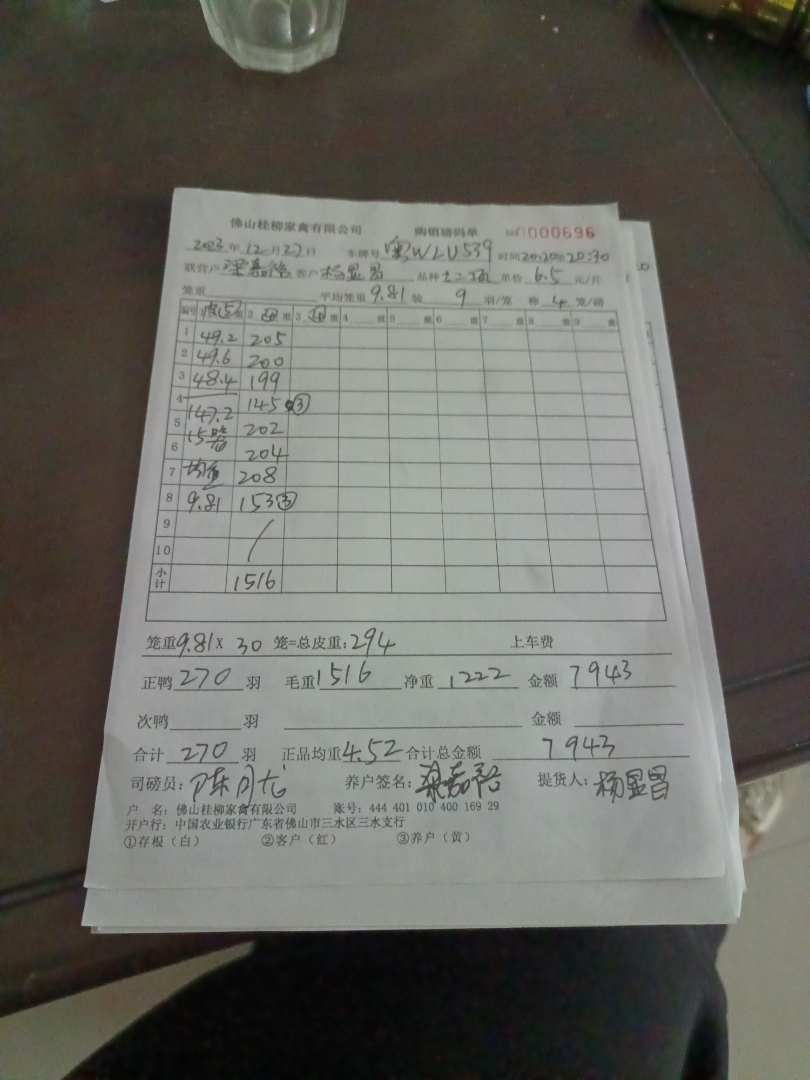 佛山桂柳家禽有限公司 购销磅码单 NO 0000696
2023年12月27日 车牌号 粤WLU539 时间20:10至20:30
联营户 梁嘉裕 客户 杨显昌 品种 单价 6.5 元/斤
笼重 平均笼重 9.81 装 9 羽/笼 称 4 笼/磅
编号 重 2 重 3 重 4 重 5 重 6 重 7 重 8 重 9 重
1 49.2 205
2 49.6 200
3 48.4 199
4 147.2 145 ③
5 15器 202
6 204
7 均重 208
8 9.81 153 ③
9
10
小计 1516
笼重 9.81 X 30 笼=总皮重: 294 上车费
正鸭 270 羽 毛重 1516 净重 1222 金额 7943
次鸭 羽 金额
合计 270 羽 正品均重 4.52 合计总金额 7943
司磅员: 陈月龙 养户签名: 梁嘉裕 提货人: 杨显昌
户 名: 佛山桂柳家禽有限公司 账号: 444 401 010 400 169 29
开户行: 中国农业银行广东省佛山市三水区三水支行
①存根（白） ②客户（红） ③养户（黄）